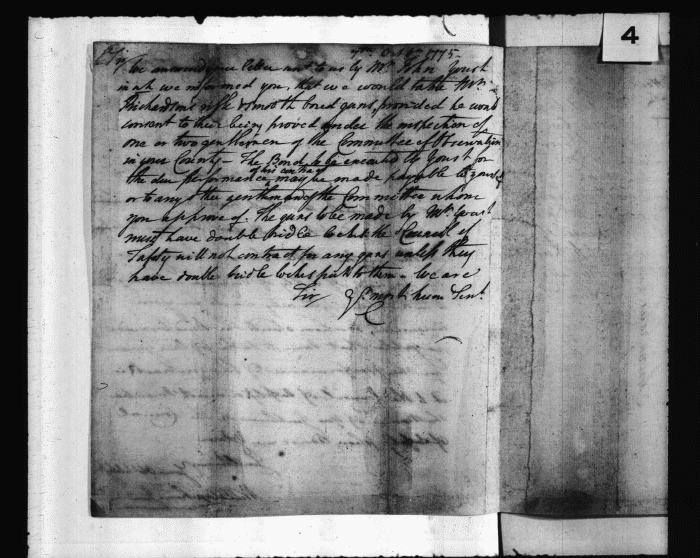 4
Oct 1775
Sir
We answered your Letter sent to us by Mr. John Yoast
in wh. we informed you, that we would take Mr.
Richardsons rifle & smooth bored guns, provided he would
consent to their being proved under the inspection of
one or two gentlemen of the Committee of Observation
in your County – The Bond to be executed by Yoast for
of his contract
the due performance may be made payable to yourself
or to any other gentleman of the Committee whom
you approve of. The guns to be made by Mr. Yoast
must have double bridle Locks the Council of
Safety will not contract for any guns unless they
have double bridle Locks put to them – We are
Sir Yr. most hum Servt.